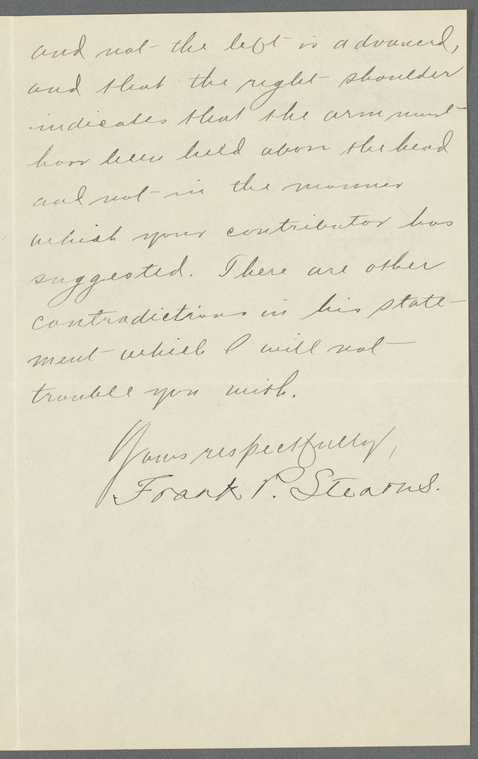 and not the left is advanced,
and that the right shoulder
indicates that the arm must
have been held above the head
and not in the manner
which your contributor has
suggested. There are other
contradictions in his state-
ment which I will not
trouble you with.
Yours respectfully,
Frank P. Stearns.